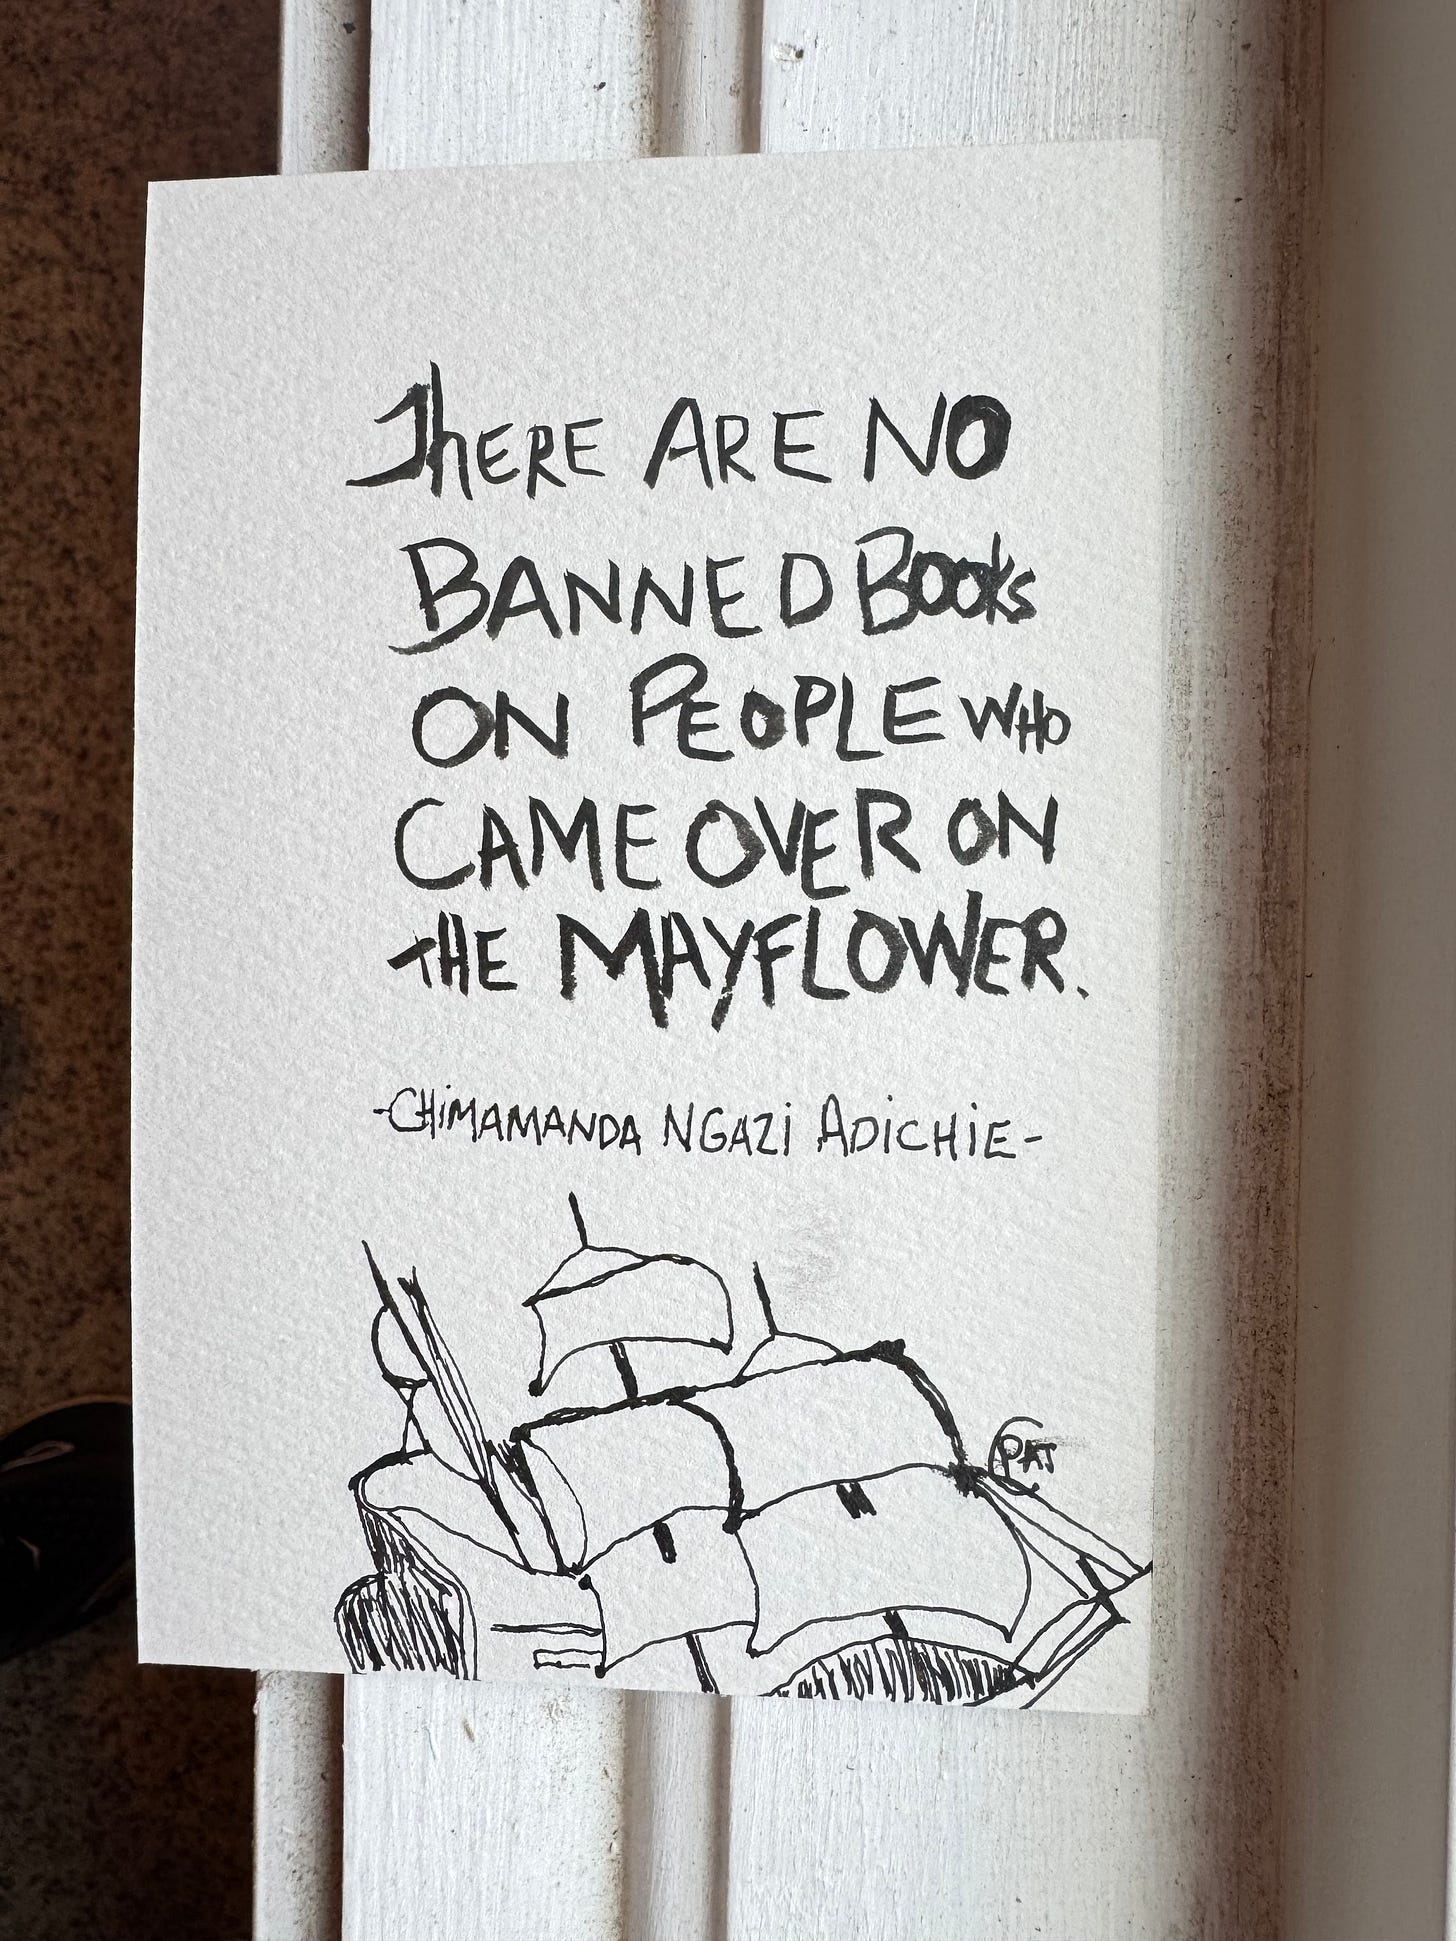 There ARE NO
BANNED BOOKS
ON PEOPLE WHO
CAME OVER ON
THE MAYFLOWER.
-CHiMAMANDA NGAZi ADiCHiE-
PAT